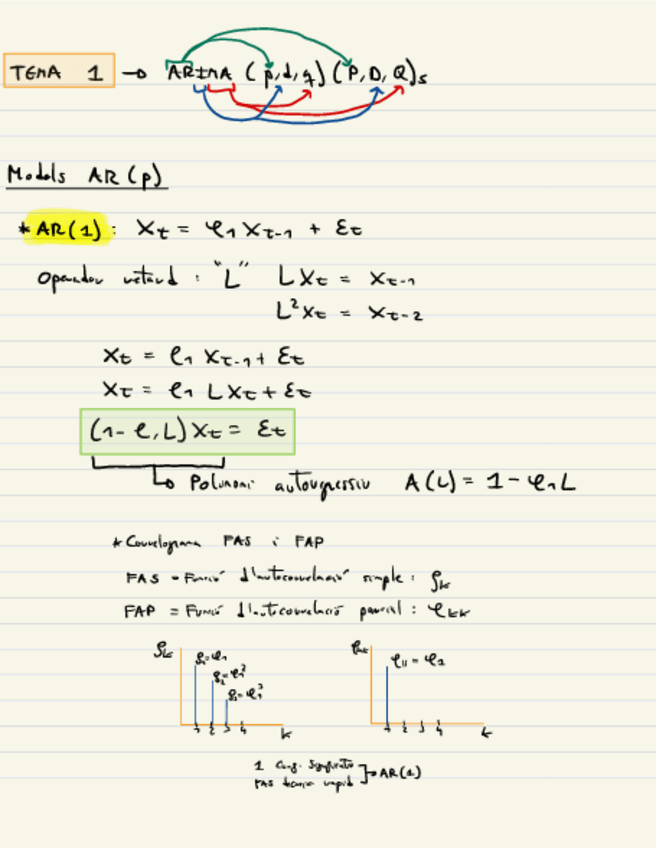 TEMA 1 → ARIMA (p,d,q)(P,D,Q)s
Models AR(p)
* AR(1): Xt = φ1 Xt-1 + Ɛt
Operador retard : "L" LXt = Xt-1
L²Xt = Xt-2
Xt = φ1 Xt-1 + Ɛt
Xt = φ1 LXt + Ɛt
(1-φ1L)Xt = Ɛt
↳ Polinomi autoregressiu A(L) = 1 - φ1L
* Correlograma FAS i FAP
FAS = Funció d'autocorrelació simple : ρk
FAP = Funció d'autocorrelació parcial : φkk
ρk ρ1=φ1 φkk φ11 = φ1
ρ2=φ1²
ρ3=φ1³
1 2 3 4 k 1 2 3 4 k
1 Coef. Significatiu
FAS decreix ràpid → AR(1)